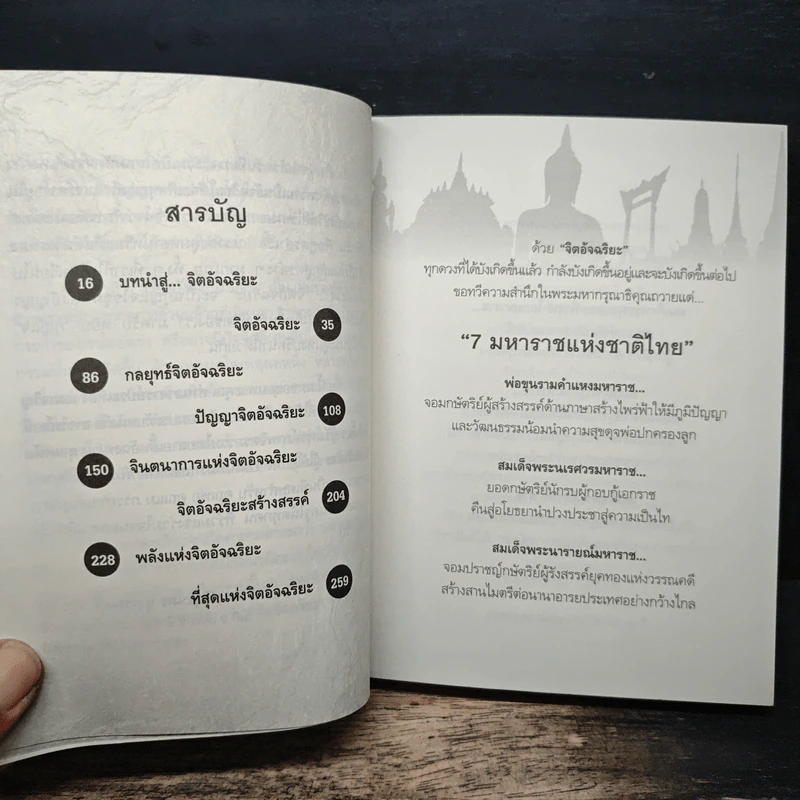 สารบัญ
16 บทนำสู่... จิตอัจฉริยะ
จิตอัจฉริยะ 35
86 กลยุทธ์จิตอัจฉริยะ
ปัญญาจิตอัจฉริยะ 108
150 จินตนาการแห่งจิตอัจฉริยะ
จิตอัจฉริยะสร้างสรรค์ 204
228 พลังแห่งจิตอัจฉริยะ
ที่สุดแห่งจิตอัจฉริยะ 259
ด้วย "จิตอัจฉริยะ"
ทุกดวงที่ได้บังเกิดขึ้นแล้ว กำลังบังเกิดขึ้นอยู่และจะบังเกิดขึ้นต่อไป
ขอทวีความสำนึกในพระมหากรุณาธิคุณถวายแด่...
"7 มหาราชแห่งชาติไทย"
พ่อขุนรามคำแหงมหาราช...
จอมกษัตริย์ผู้สร้างสรรค์ด้านภาษาสร้างไพร่ฟ้าให้มีภูมิปัญญา
และวัฒนธรรมน้อมนำความสุขดุจพ่อปกครองลูก
สมเด็จพระนเรศวรมหาราช...
ยอดกษัตริย์นักรบผู้กอบกู้เอกราช
คืนสู่อโยธยานำปวงประชาสู่ความเป็นไท
สมเด็จพระนารายณ์มหาราช...
จอมปราชญ์กษัตริย์ผู้รังสรรค์ยุคทองแห่งวรรณคดี
สร้างสานไมตรีต่อนานาอารยประเทศอย่างกว้างไกล